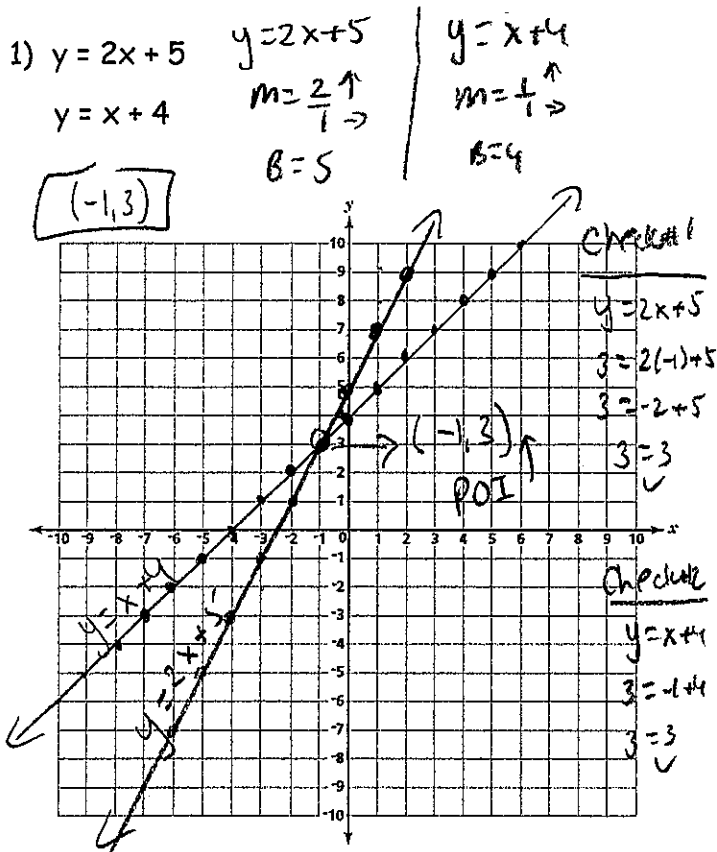 1) y = 2x + 5
y = x + 4
y=2x+5
m=2/1 ↑ →
B=5
y=x+4
m=1/1 ↑ →
B=4
(-1,3)
y
10
9
8
7
6
5
4
3
2
1
→ (-1,3)
POI ↑
-10 -9 -8 -7 -6 -5 -4 -3 -2 -1 0 1 2 3 4 5 6 7 8 9 10 x
-1
-2
-3
-4
-5
-6
-7
-8
-9
-10
y=x+4
Check#1
y=2x+5
3=2(-1)+5
3=-2+5
3=3
✓
Check#2
y=x+4
3=-1+4
3=3
✓